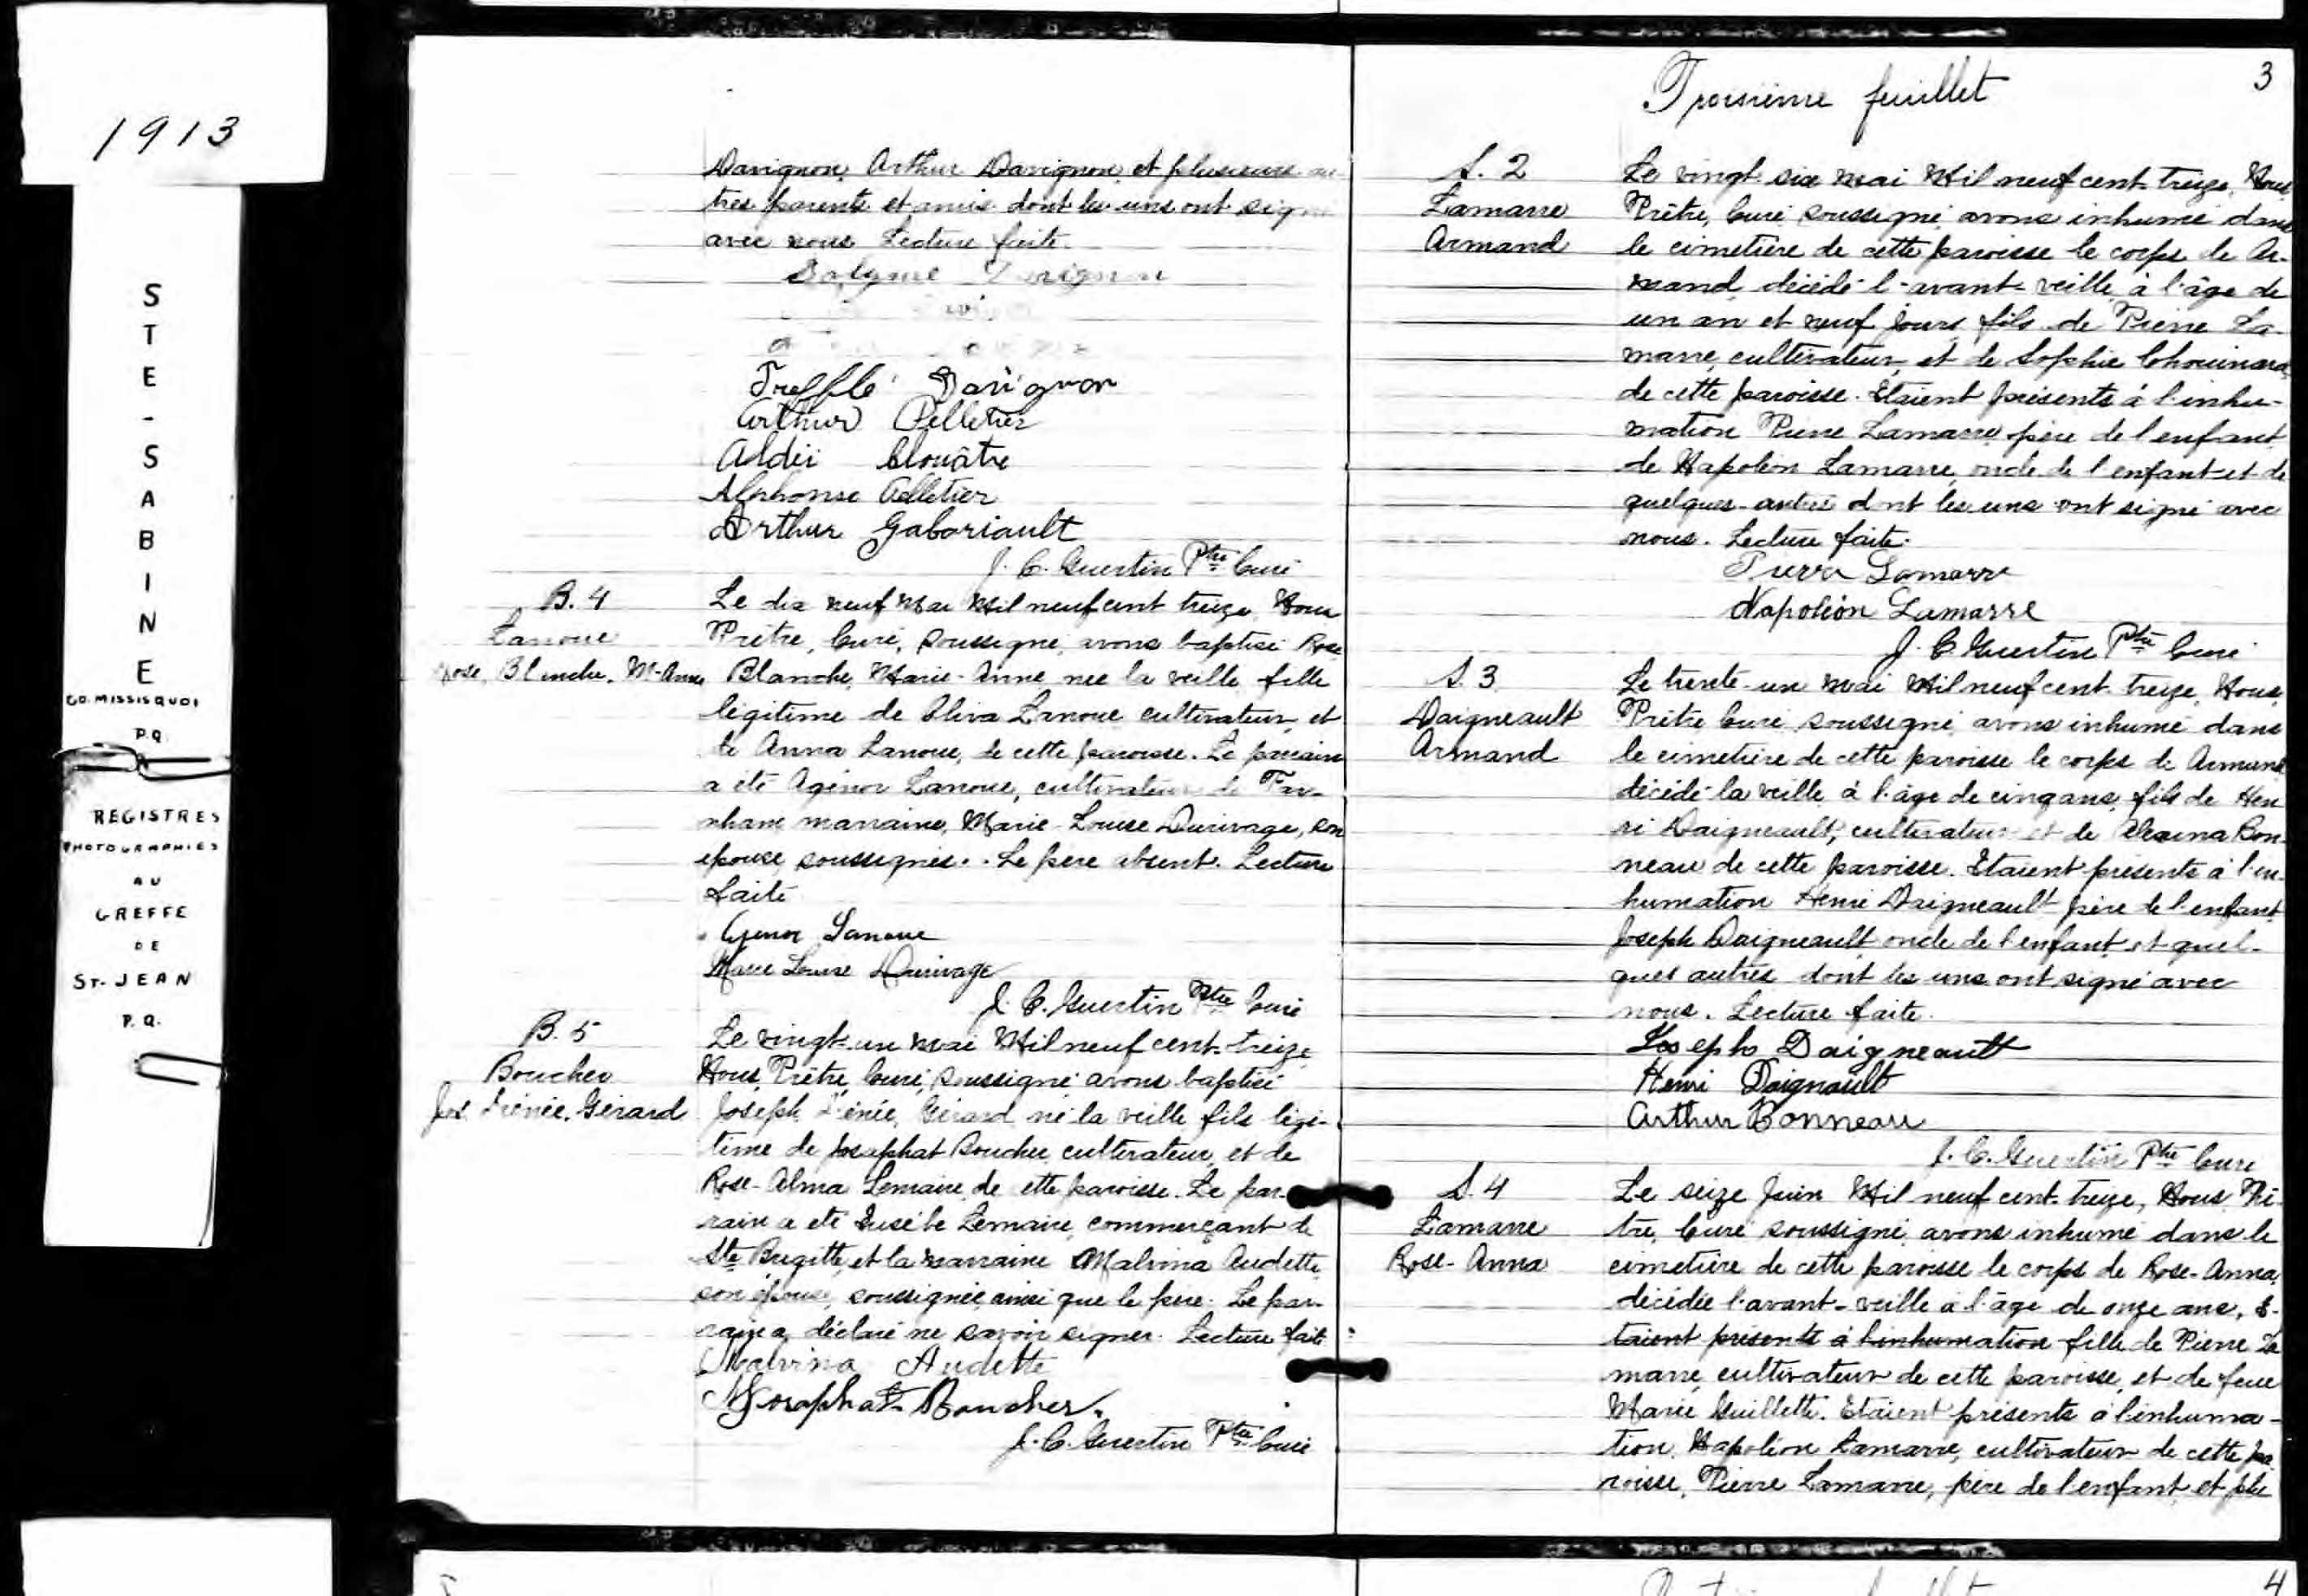 1913
STE-SABINE
CO. MISSISQUOI
P.Q.
REGISTRES
PHOTOGRAPHIES
AU
GREFFE
DE
ST-JEAN
P.Q.
Davignon, Arthur Davignon, et plusieurs au-
tres parents et amis dont les uns ont signé
avec nous Lecture faite.
Trefflé Davignon
Arthur Pelletier
Aldéi Clouâtre
Alphonse Pelletier
Arthur Gaboriault
J. C. Guertin Ptre Curé
B. 4
Lanoue
Rose, Blanche, M-Anne
Le dix neuf Mai Mil neuf cent treize Nous
Prêtre, Curé, soussigné, avons baptisé Rose
Blanche, Marie-Anne née la veille fille
légitime de Oliva Lanoue cultivateur, et
de Anna Lanoue, de cette paroisse. Le parrain
a été Agénor Lanoue, cultivateur de Far-
nham marraine, Marie-Louise Durivage, son
épouse, soussignés. Le père absent. Lecture
faite
Agenor Lanoue
Marie Louise Durivage
J. C. Guertin Ptre Curé
B. 5
Boucher
Jos. Irénée, Gérard
Le vingt-un mai Mil neuf cent-treize
Nous, Prêtre, Curé, soussigné avons baptisé
Joseph Irénée, Gérard né la veille fils légi-
time de Josaphat Boucher cultivateur, et de
Rose-Alma Lemaire, de cette paroisse. Le par-
rain a été Eusèbe Lemaire, commerçant de
Ste Brigitte, et la marraine Malvina Audette
son épouse, soussignée, ainsi que le père. Le par-
rain a déclaré ne savoir signer. Lecture faite
Malvina Audette
Josaphat Boucher
J. C. Guertin Ptre Curé
3
Troisième feuillet
S. 2
Lamarre
Armand
Le vingt-six mai Mil neuf cent-treize, Nous
Prêtre, Curé soussigné, avons inhumé dans
le cimetière de cette paroisse le corps de Ar-
mand, décédé l'avant-veille, à l'âge de
un an et neuf jours, fils de Pierre La-
marre, cultivateur, et de Sophie Chouinard,
de cette paroisse. Etaient présents à l'inhu-
mation Pierre Lamarre père de l'enfant
de Napoléon Lamarre, oncle de l'enfant et de
quelques-autres dont les uns ont signé avec
nous. Lecture faite.
Pierre Lamarre
Napoléon Lamarre
J. C. Guertin Ptre Curé
S. 3
Daigneault
Armand
Le trente-un mai Mil neuf cent-treize, Nous,
Prêtre Curé soussigné avons inhumé dans
le cimetière de cette paroisse le corps de Armand
décédé la veille à l'âge de cinq ans, fils de Hen
ri Daigneault, cultivateur et de Alexina Bon-
neau de cette paroisse. Etaient présents à l'in-
humation Henri Daigneault père de l'enfant,
Joseph Daigneault oncle de l'enfant, et quel-
ques autres dont les uns ont signé avec
nous. Lecture faite.
Joseph Daigneault
Henri Daignault
Arthur Bonneau
J. C. Guertin Ptre Curé
S. 4
Lamarre
Rose-Anna
Le seize Juin Mil neuf cent-treize, Nous Prê-
tre, Curé soussigné, avons inhumé dans le
cimetière de cette paroisse le corps de Rose-Anna,
décédée l'avant-veille à l'âge de onze ans, E-
taient présents à l'inhumation fille de Pierre La
marre, cultivateur de cette paroisse, et de feue
Marie Guillette. Etaient présents à l'inhuma-
tion. Napoléon Lamarre, cultivateur de cette pa
roisse, Pierre Lamarre, père de l'enfant et plu
4